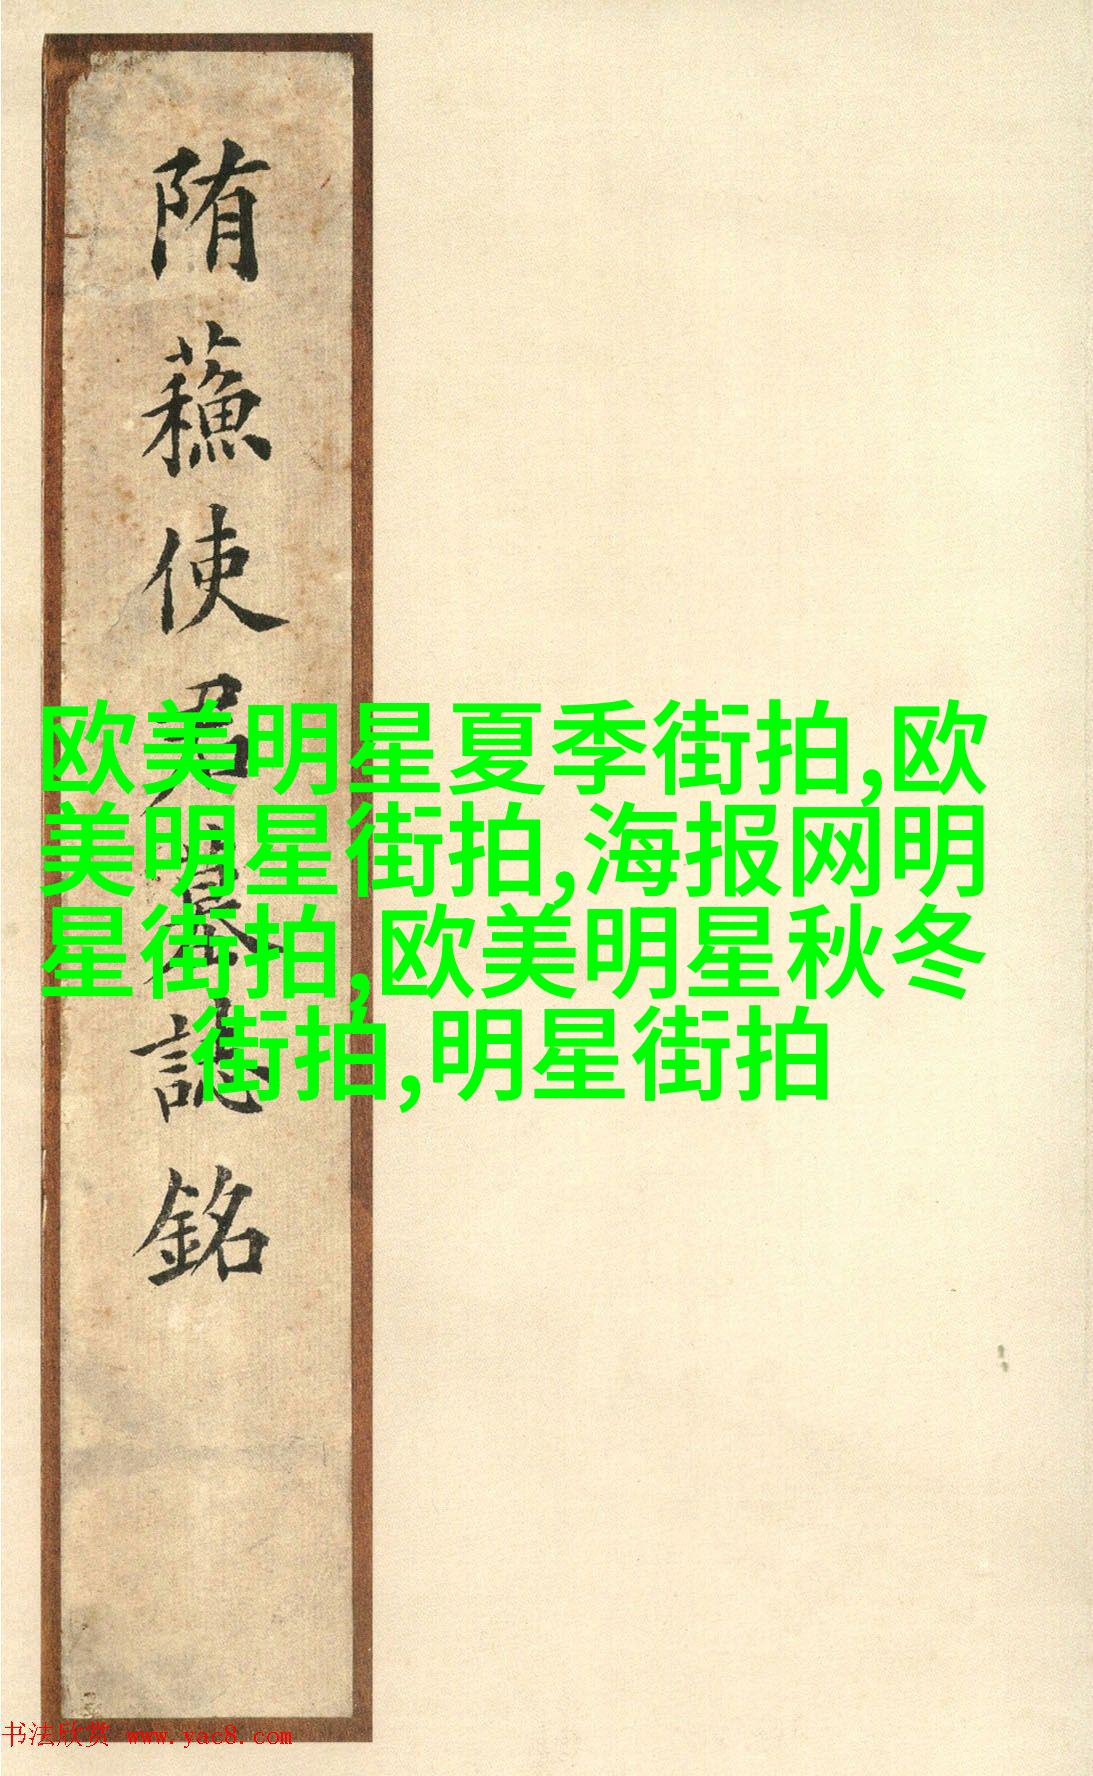 陏蘓使君墓誌銘
欧美明星夏季街拍,欧
美明星街拍,海报网明
星街拍,欧美明星秋冬
街拍,明星街拍
书法欣赏 www.yac8.com